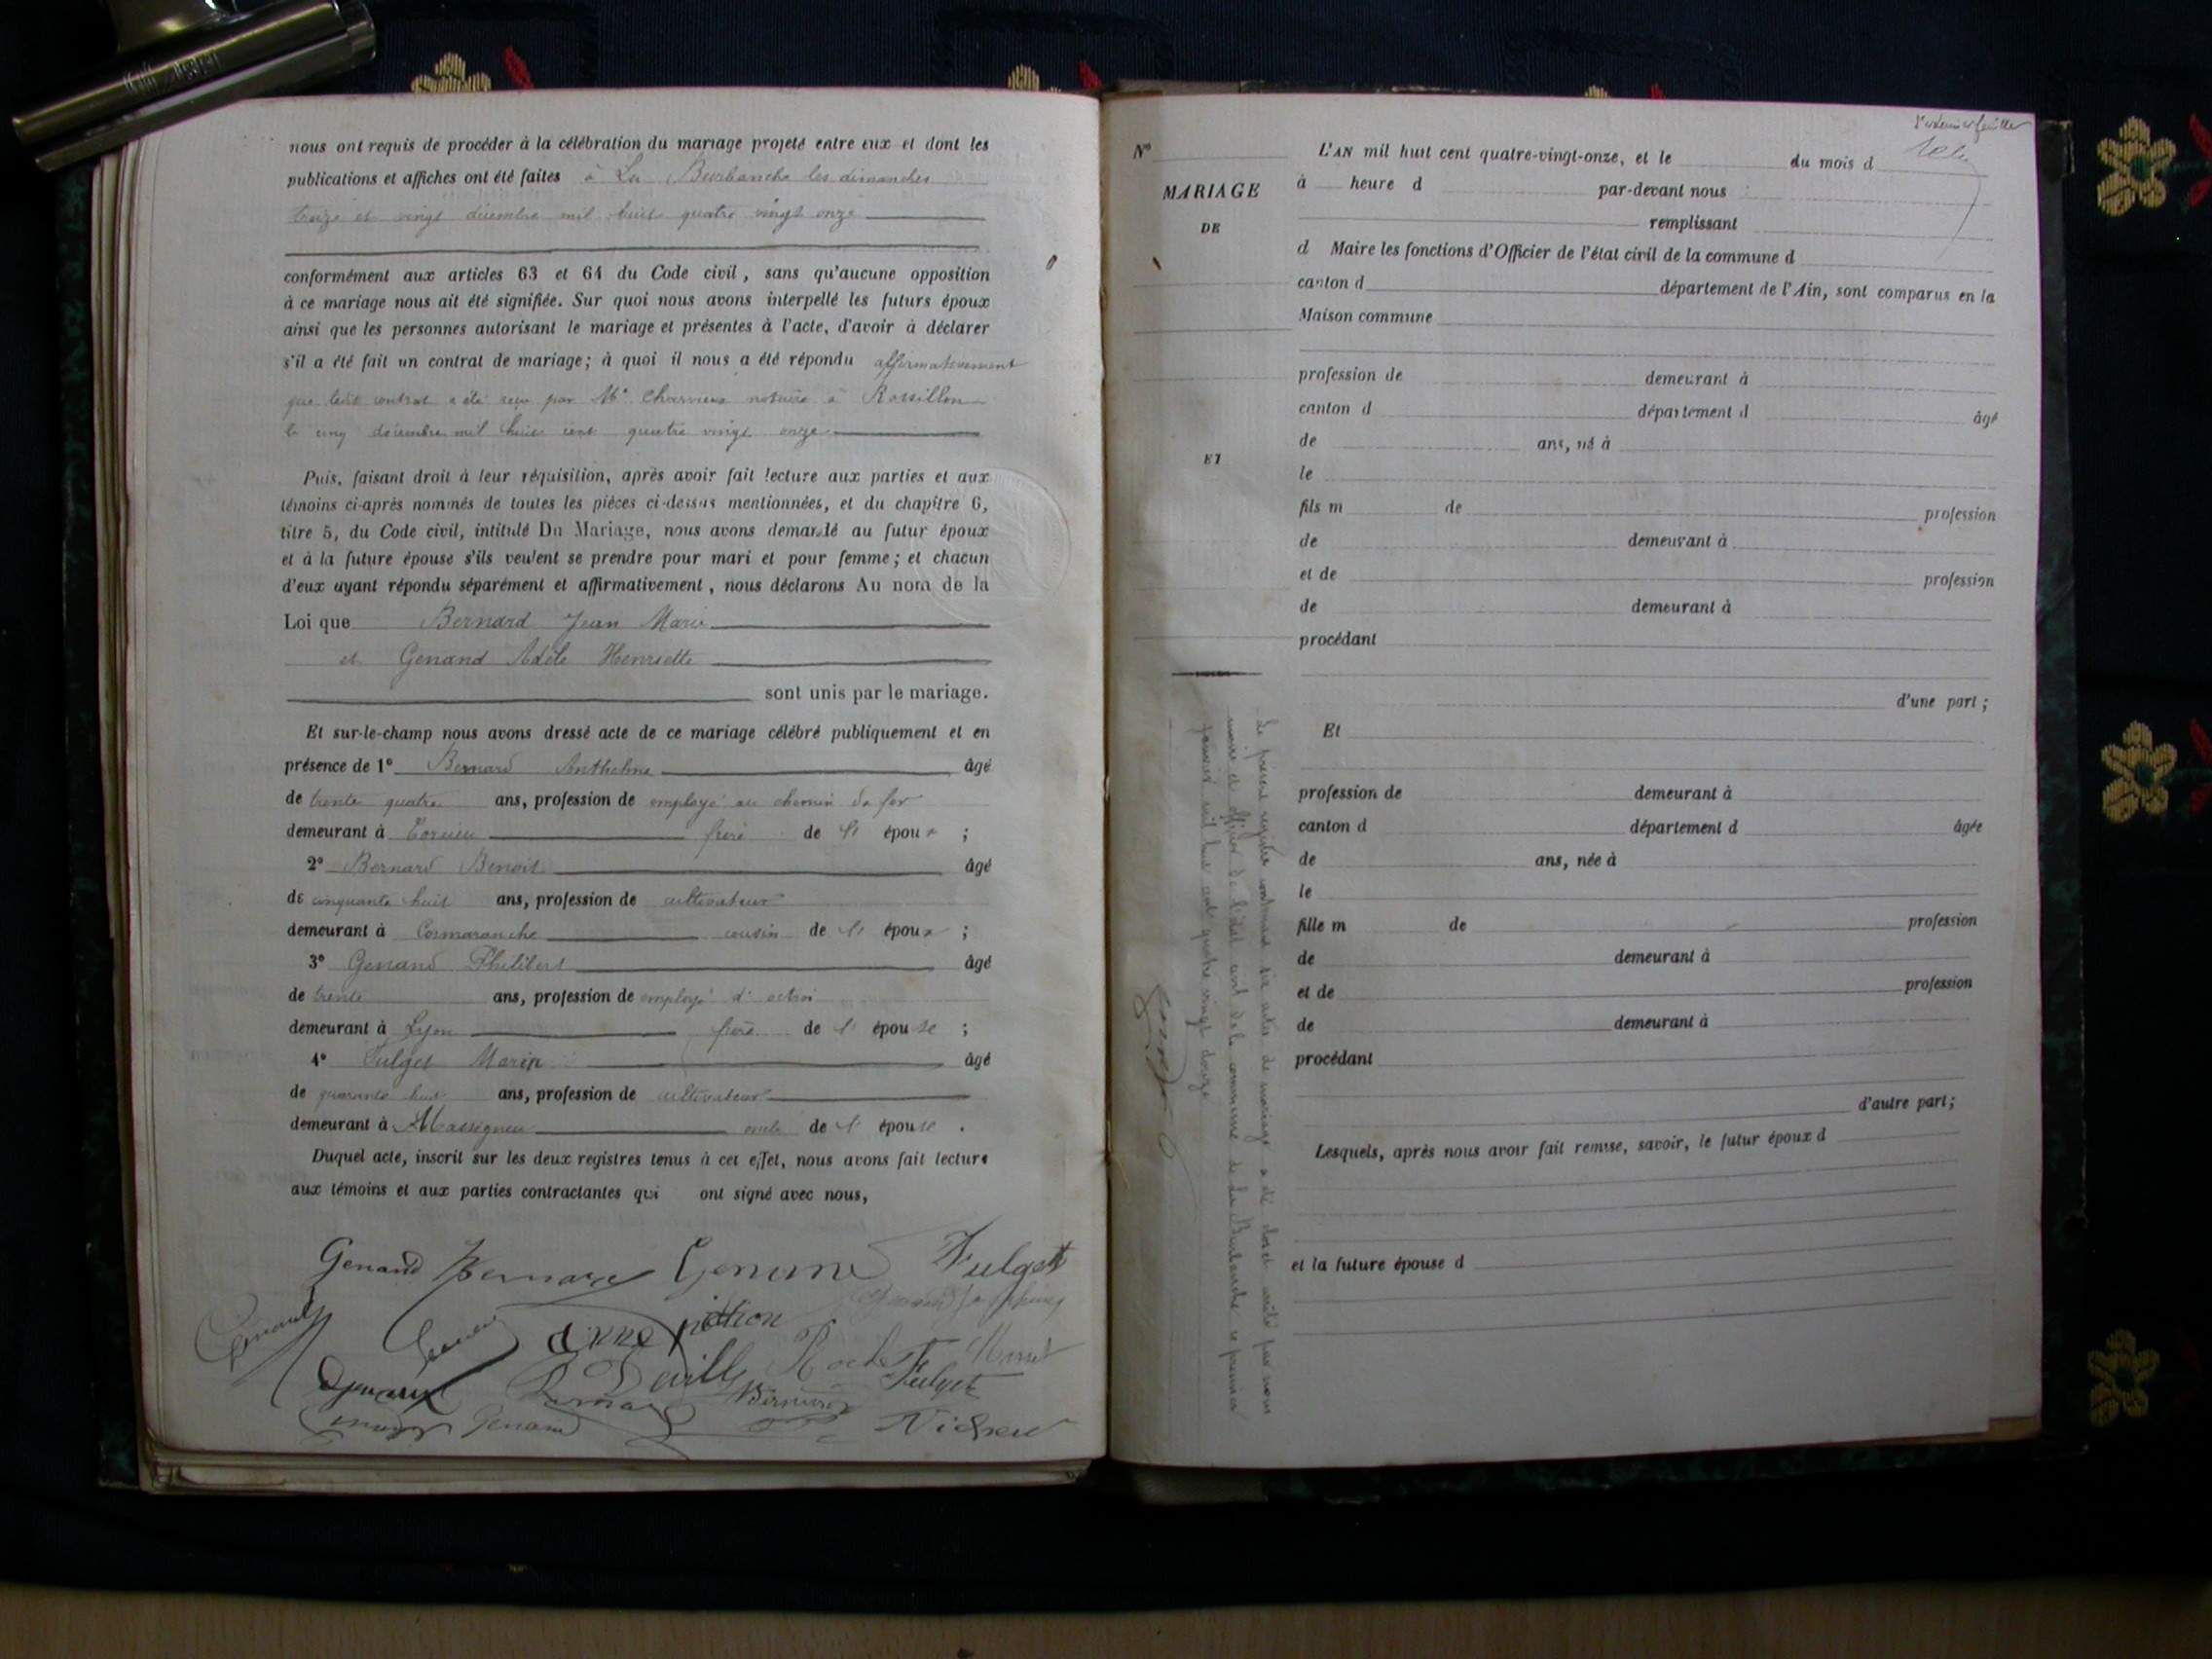 nous ont requis de procéder à la célébration du mariage projeté entre eux et dont les
publications et affiches ont été faites à La Burbanche les dimanches
treize et vingt décembre mil huit quatre vingt onze
conformément aux articles 63 et 64 du Code civil, sans qu'aucune opposition
à ce mariage nous ait été signifiée. Sur quoi nous avons interpellé les futurs époux
ainsi que les personnes autorisant le mariage et présentes à l'acte, d'avoir à déclarer
s'il a été fait un contrat de mariage; à quoi il nous a été répondu affirmativement
que ledit contrat a été reçu par Me notaire à Rossillon
le cinq décembre mil huit cent quatre vingt onze
Puis, faisant droit à leur réquisition, après avoir fait lecture aux parties et aux
témoins ci-après nommés de toutes les pièces ci-dessus mentionnées, et du chapitre 6,
titre 5, du Code civil, intitulé Du Mariage, nous avons demandé au futur époux
et à la future épouse s'ils veulent se prendre pour mari et pour femme; et chacun
d'eux ayant répondu séparément et affirmativement, nous déclarons Au nom de la
Loi que Bernard Jean Marie
et Genand Adèle Henriette
sont unis par le mariage.
Et sur-le-champ nous avons dressé acte de ce mariage célébré publiquement et en
présence de 1° Bernard Anthelme âgé
de trente quatre ans, profession de employé au chemin de fer
demeurant à frère de l' époux ;
2° Bernard Benoit âgé
de cinquante huit ans, profession de cultivateur
demeurant à Cormaranche cousin de l' époux ;
3° Genand Philibert âgé
de trente ans, profession de employé d'octroi
demeurant à Lyon frère de l' épouse ;
4° Fulget Marin âgé
de quarante huit ans, profession de cultivateur
demeurant à Massignieu oncle de l' épouse .
Duquel acte, inscrit sur les deux registres tenus à cet effet, nous avons fait lecture
aux témoins et aux parties contractantes qui ont signé avec nous,
Genand Bernard Genand Fulget
Genand Josephine
Anne
Roche
Fulget
Bernard
Genand
N°
MARIAGE
DE
ET
L'AN mil huit cent quatre-vingt-onze, et le du mois d
à heure d par-devant nous
remplissant
d Maire les fonctions d'Officier de l'état civil de la commune d
canton d département de l'Ain, sont comparus en la
Maison commune
profession de demeurant à
canton d département d âgé
de ans, né à
le
fils m de profession
de demeurant à
et de profession
de demeurant à
procédant
d'une part ;
Et
profession de demeurant à
canton d département d âgée
de ans, née à
le
fille m de profession
de demeurant à
et de profession
de demeurant à
procédant
d'autre part;
Lesquels, après nous avoir fait remise, savoir, le futur époux d
et la future épouse d
Le présent registre contenant six actes de mariage a été clos et arrêté par nous
maire et officier de l'état civil de la commune de La Burbanche ce premier
janvier mil huit cent quatre vingt douze